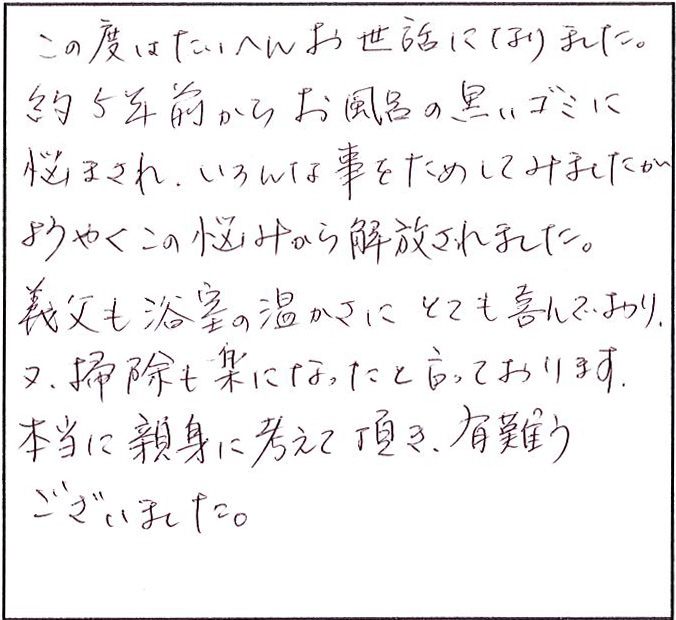 この度はたいへんお世話になりました。
約5年前からお風呂の黒いゴミに
悩まされ、いろんな事をためしてみましたが
ようやくこの悩みから解放されました。
義父も浴室の温かさにとても喜んでおり、
又、掃除も楽になったと言っております。
本当に親身に考えて頂き、有難う
ございました。